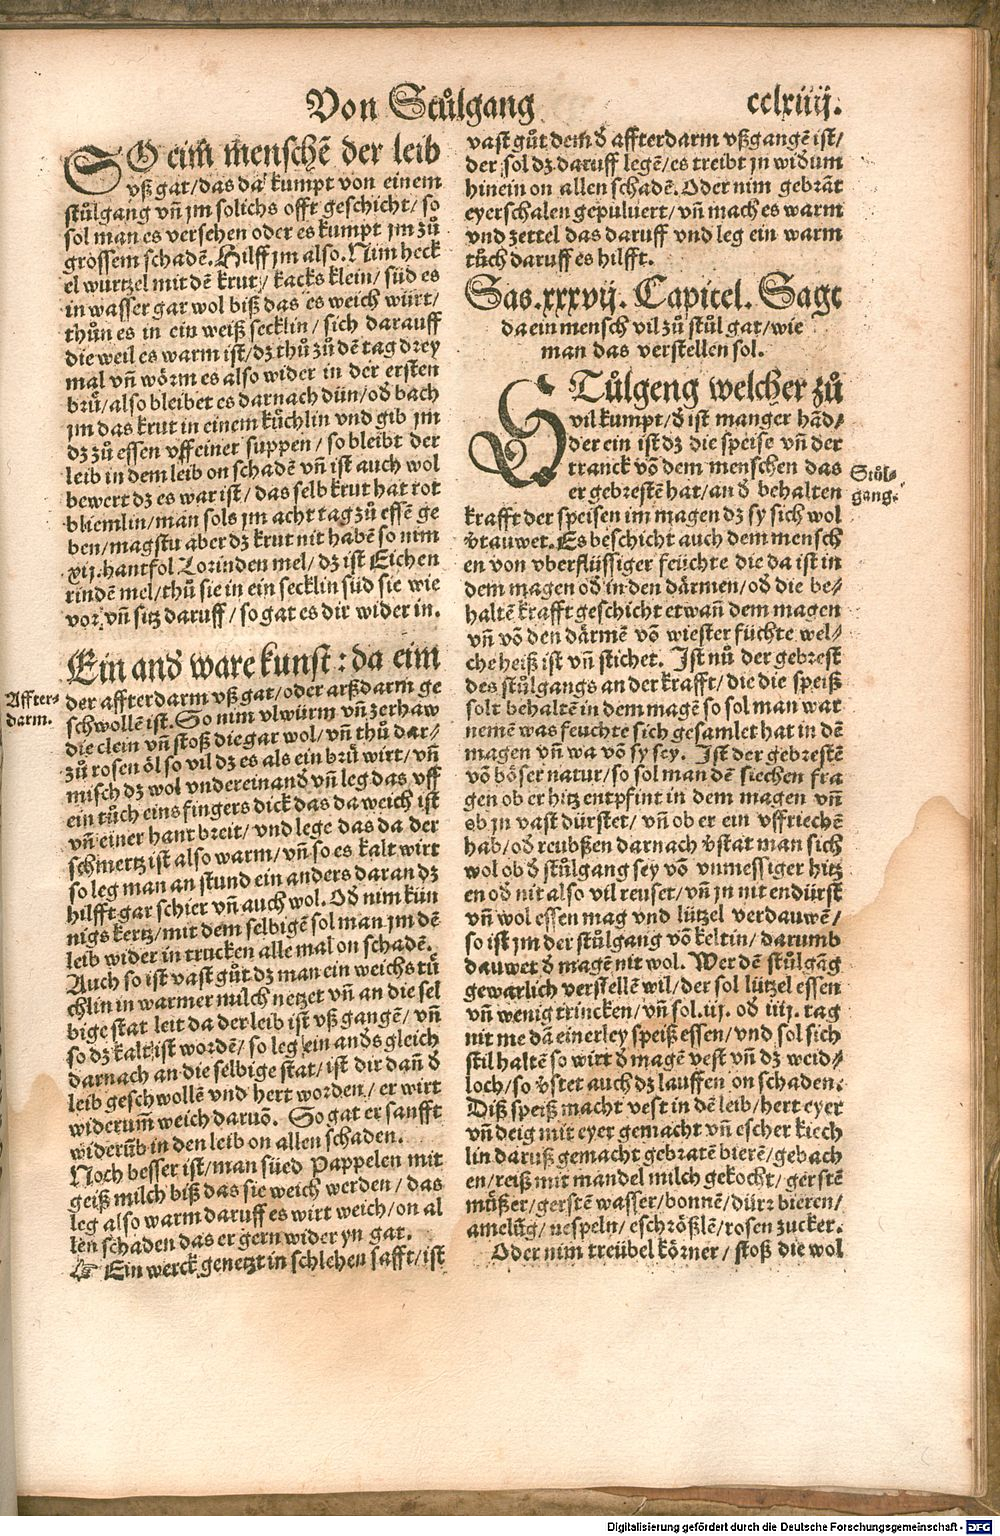 Von Stůlgang
cclxiiij.
SO eim menschē der leib
vß gat/das da kumpt von einem
stůlgang vn̄ jm solichs offt geschicht/so
sol man es versehen oder es kumpt jm zů
grossem schadē. Hilff jm also. Nim heck
el wurtzel mit dē krut/kacks klein/süd es
in wasser gar wol biß das es weich würt/
thůn es in ein weiß secklin/sich darauff
die weil es warm ist/dz thů zů dē tag drey
mal vn̄ wörm es also wider in der ersten
brů/also bleibet es darnach dün/oď bach
jm das krut in einem kůchlin vnd gib jm
dz zů essen vff einer suppen/so bleibt der
leib in dem leib on schadē vn̄ ist auch wol
bewert dz es war ist/das selb krut hat rot
bliemlin/man sols jm acht tag zů essē ge
ben/magstu aber dz krut nit habē so nim
xij.hantfol Lorinden mel/dz ist Eichen
rindē mel/thů sie in ein secklin süd sie wie
vor/vn̄ sitz daruff/so gat es dir wider in.
Ein anď ware kunst: da eim
der affterdarm vß gat/oder arßdarm ge
schwollē ist. So nim vlwürm vn̄ zerhaw
die clein vn̄ stoß die gar wol/vn̄ thů dar⸗
zů rosen öl so vil dz es als ein brů wirt/vn̄
misch dz wol vndereinanď vn̄ leg das vff
ein tůch eins fingers dick das da weich ist
vn̄ einer hant breit/vnd lege das da der
schmertz ist also warm/vn̄ so es kalt wirt
so leg man an stund ein anders daran dz
hilfft gar schier vn̄ auch wol. Oď nim kün
nigs kertz/mit dem selbigē sol man jm dē
leib wider in trucken alle mal on schadē.
Auch so ist vast gůt dz man ein weichs tů
chlin in warmer milch netzet vn̄ an die sel
bige stat leit da der leib ist vß gangē/vn̄
so dz kalt ist wordē/so leg ein anďs gleich
darnach an die selbige stat/ist dir dan̄ ď
leib geschwollē vnd hert worden/er wirt
widerum̄ weich daruō. So gat er sanfft
widerūb in den leib on allen schaden.
Noch besser ist/man süed Pappelen mit
geiß milch biß das sie weich werden/das
leg also warm daruff es wirt weich/on al
len schaden das er gern wider yn gat.
☞ Ein werck genetzt in schlehen safft/ist
Affter⸗
darm.
vast gůt dem ď affterdarm vßgangē ist/
der sol dz daruff legē/es treibt jn widum
hinein on allen schadē. Oder nim gebrāt
eyerschalen gepuluert/vn̄ mach es warm
vnd zettel das daruff vnd leg ein warm
tůch daruff es hilfft.
Das.xxxvij. Capitel. Sagt
da ein mensch vil zů stůl gat/wie
man das verstellen sol.
STůlgeng welcher zů
vil kumpt/ď ist manger hād⸗
der ein ist dz die speise vn̄ der
tranck vō dem menschen das
er gebrestē hat/an ď behalten
krafft der speisen im magen dz sy sich wol
v̓tauwet. Es beschicht auch dem mensch
en von vberflüssiger feüchte die da ist in
dem magen oď in den därmen/oď die be⸗
haltē krafft geschicht etwan̄ dem magen
vn̄ vō den därmē vō wiester füchte wel⸗
che heiß ist vn̄ stichet. Ist nů der gebrest
des stůlgangs an der krafft/die die speiß
solt behaltē in dem magē so sol man war
nemē was feuchte sich gesamlet hat in dē
magen vn̄ wa vō sy sey. Ist der gebrestē
vō böser natur/so sol man dē siechen fra
gen ob er hitz entpfint in dem magen vn̄
ob jn vast dürstet/vn̄ ob er ein vffriechē
hab/oď reubßen darnach v̓stat man sich
wol ob ď stůlgang sey vō vnmessiger hitz
en oď nit also vil reuset/vn̄ jn nit endürst
vn̄ wol essen mag vnd lützel verdauwē/
so ist jm der stůlgang vō keltin/darumb
dauwet ď magē nit wol. Wer dē stůlgāg
gewarlich verstellē wil/der sol lützel essen
vn̄ wenig trincken/vn̄ sol.iij. oď iiij. tag
nit me dā einerley speiß essen/vnd sol sich
stil haltē so wirt ď magē vest vn̄ dz weid⸗
loch/so v̓stet auch dz lauffen on schaden.
Diß speiß macht vest in dē leib/hert eyer
vn̄ deig mit eyer gemacht vn̄ escher kiech
lin daruß gemacht gebratē bierē/gebach
en/reiß mit mandel milch gekocht/gerstē
můßer/gerstē wasser/bonnē/dürr bieren/
amelūg/nespeln/eschrößlē/rosen zucker.
Oder nim treübel körner/stoß die wol
Stůl⸗
gang.
Digitalisierung gefördert durch die Deutsche Forschungsgemeinschaft - DFG